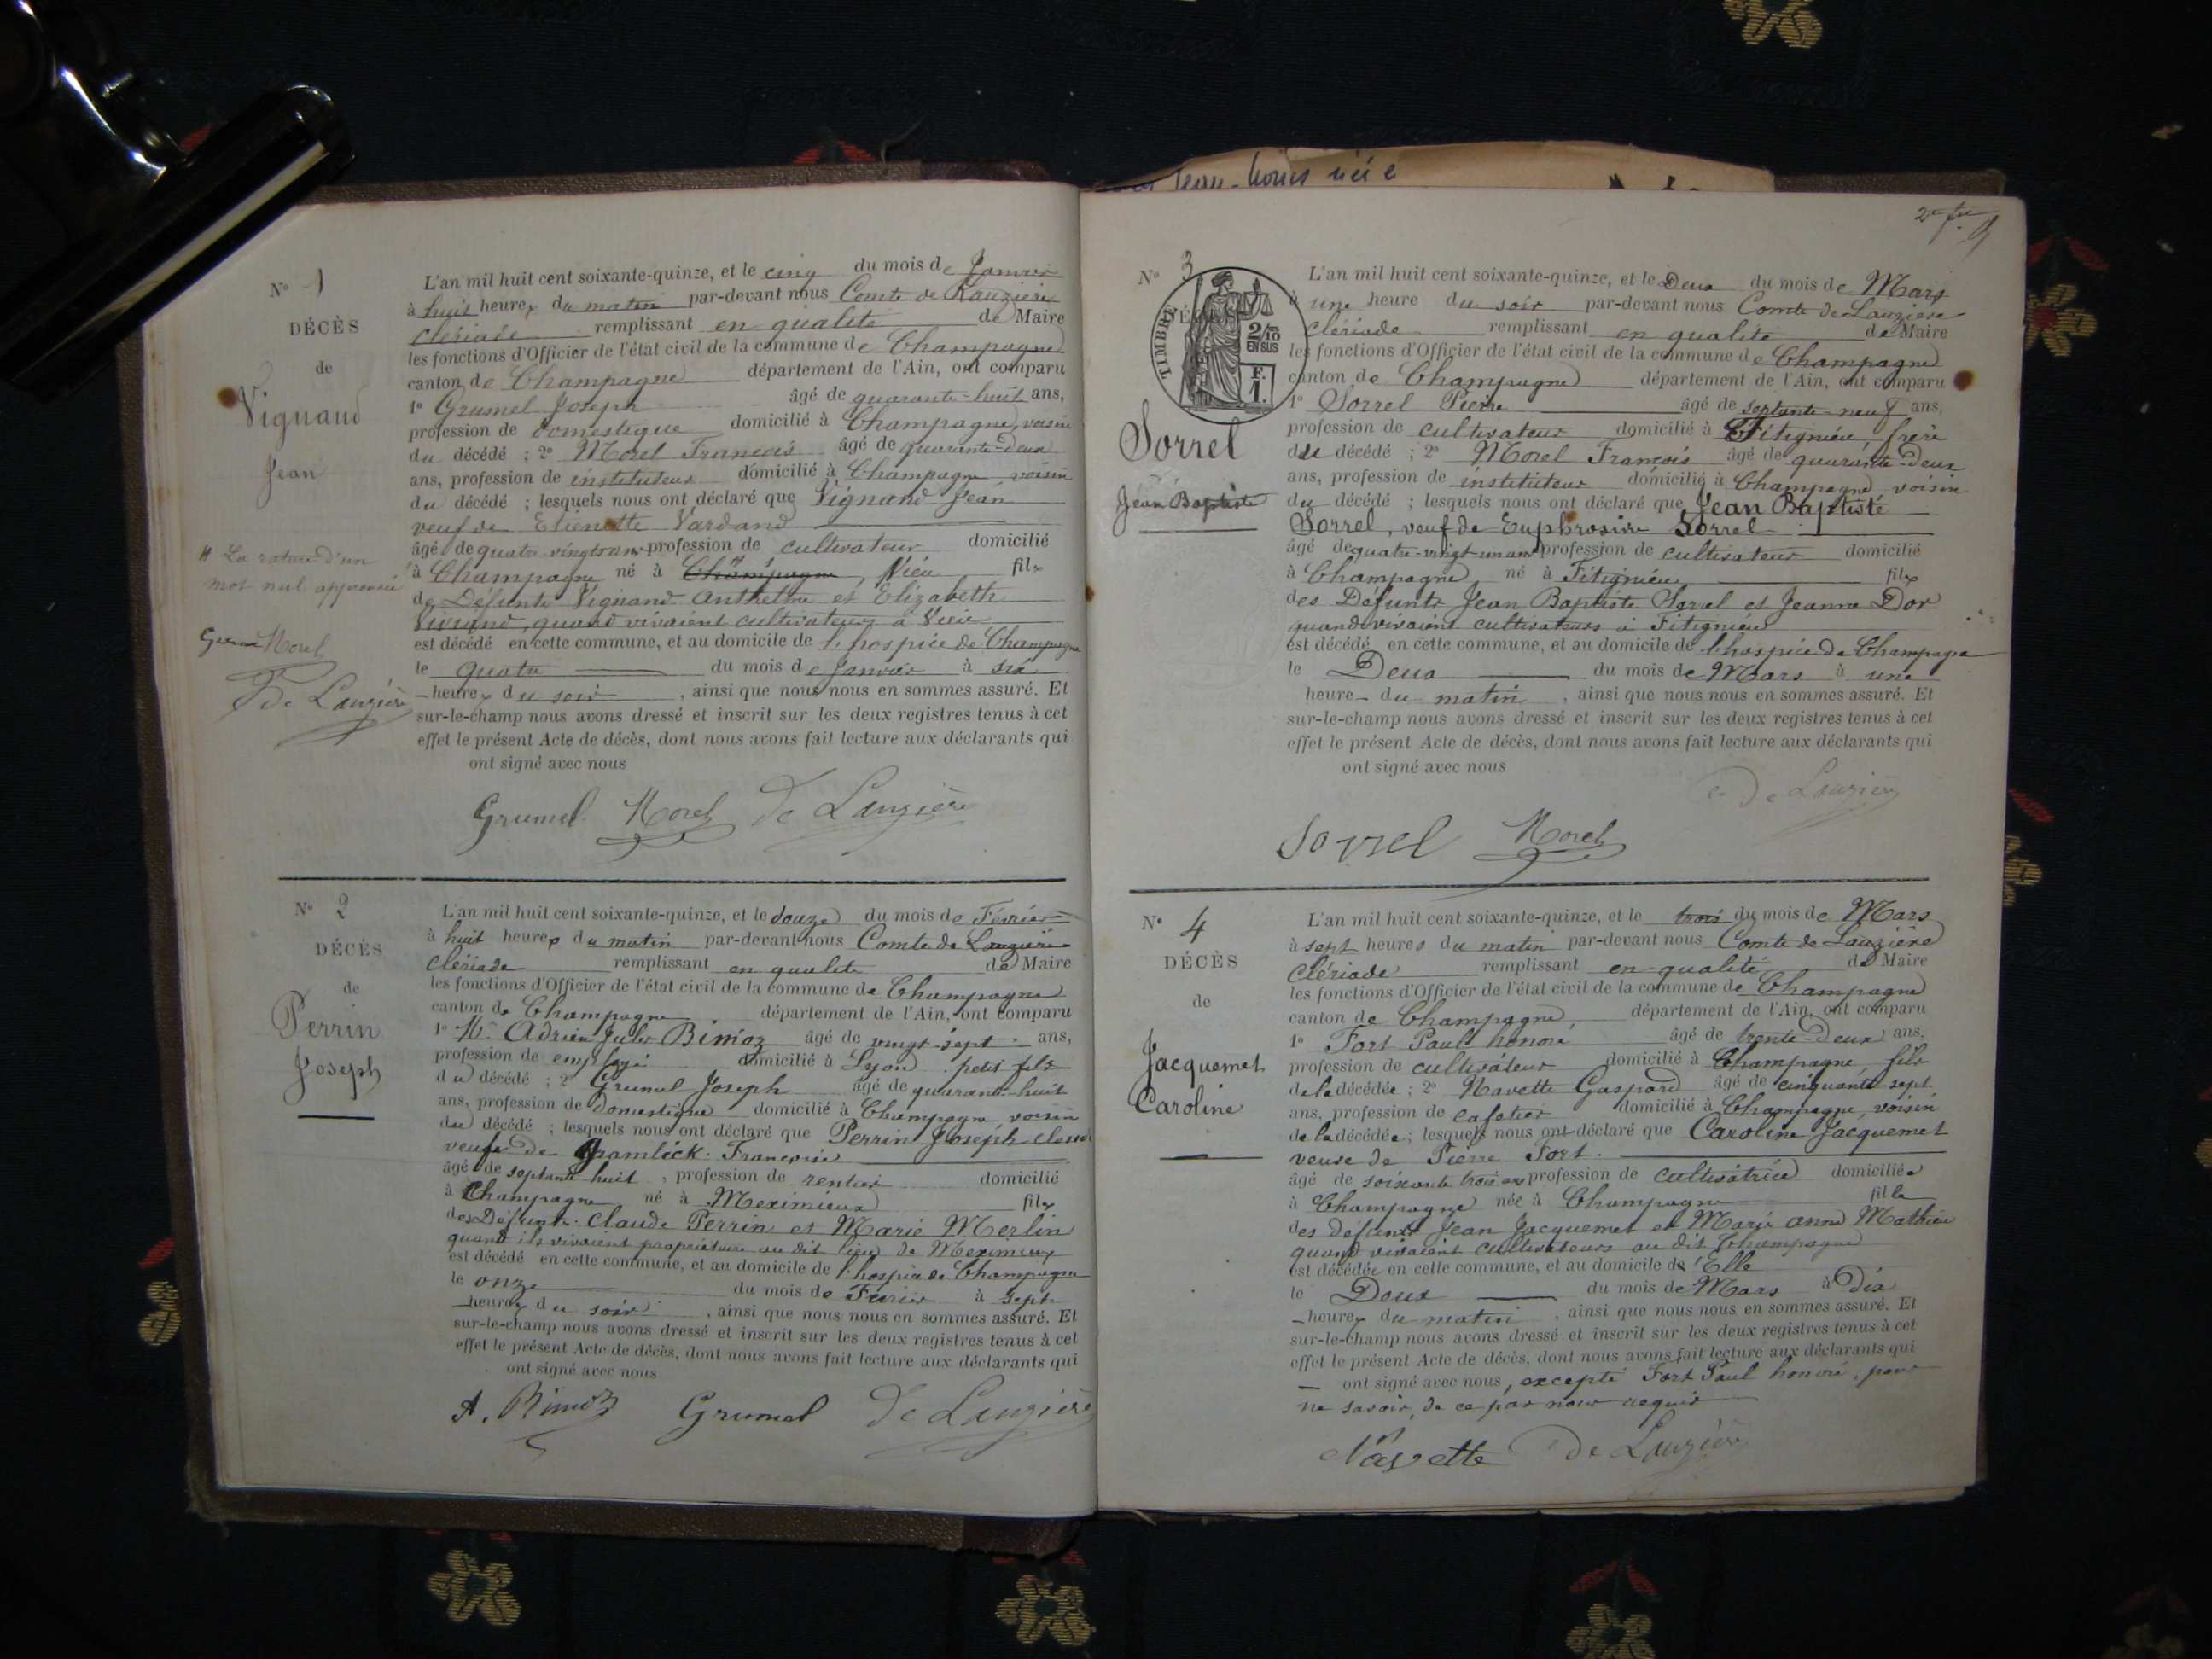 N° 1
DÉCÈS
de
Vignand
Jean
# La rature d'un
mot nul approuvé
Grumel Morel
De Lauzière
L'an mil huit cent soixante-quinze, et le cinq du mois de Janvier
à huit heures du matin par-devant nous Comte de Lauzière
Clériade remplissant en qualité de Maire
les fonctions d'Officier de l'état civil de la commune de Champagne
canton de Champagne département de l'Ain, ont comparu
1° Grumel Joseph âgé de quarante-huit ans,
profession de domestique domicilié à Champagne, voisin
du décédé ; 2° Morel François âgé de quarante-deux
ans, profession de instituteur domicilié à Champagne voisin
du décédé ; lesquels nous ont déclaré que Vignand Jean
veuf de Etienette Vardand
âgé de quatre vingts ans profession de cultivateur domicilié
à Champagne né à Champagne Vieu fils
de Défunts Vignand Anthelme et Elizabeth
quand vivaient cultivateurs à Vieu
est décédé en cette commune, et au domicile de l'hospice de Champagne
le quatre du mois de Janvier à six
heures du soir, ainsi que nous nous en sommes assuré. Et
sur-le-champ nous avons dressé et inscrit sur les deux registres tenus à cet
effet le présent Acte de décès, dont nous avons fait lecture aux déclarants qui
ont signé avec nous
Grumel Morel De Lauzière
N° 2
DÉCÈS
de
Perrin
Joseph
L'an mil huit cent soixante-quinze, et le douze du mois de Février
à huit heures du matin par-devant nous Comte de Lauzière
Clériade remplissant en qualité de Maire
les fonctions d'Officier de l'état civil de la commune de Champagne
canton de Champagne département de l'Ain, ont comparu
1° Mr Adrien Jules Bimoz âgé de vingt-sept ans,
profession de employé domicilié à Lyon petit fils
du décédé ; 2° Grumel Joseph âgé de quarante-huit
ans, profession de Domestique domicilié à Champagne, voisin
du décédé ; lesquels nous ont déclaré que Perrin Joseph
veuf de Gramlick Françoise
âgé de septante huit, profession de rentier domicilié
à Champagne né à Meximieux fils
des Défunts Claude Perrin et Marie Merlin
quand ils vivaient propriétaire au dit lieu de Meximieux
est décédé en cette commune, et au domicile de l'hospice de Champagne
le onze du mois de Février à sept
heures du soir, ainsi que nous nous en sommes assuré. Et
sur-le-champ nous avons dressé et inscrit sur les deux registres tenus à cet
effet le présent Acte de décès, dont nous avons fait lecture aux déclarants qui
ont signé avec nous
A. Bimoz Grumel De Lauzière
Jean-Louis née
2e
N° 3
TIMBRE
2/10
EN SUS
F.
1.
Sorrel
Jean Baptiste
L'an mil huit cent soixante-quinze, et le Deux du mois de Mars
à une heure du soir par-devant nous Comte de Lauzière
Clériade remplissant en qualité de Maire
les fonctions d'Officier de l'état civil de la commune de Champagne
canton de Champagne département de l'Ain, ont comparu
1° Sorrel Pierre âgé de septante-neuf ans,
profession de cultivateur domicilié à Fitignieu, frère
du décédé ; 2° Morel François âgé de quarante-deux
ans, profession de instituteur domicilié à Champagne voisin
du décédé ; lesquels nous ont déclaré que Jean Baptiste
Sorrel, veuf de Euphrosine Sorrel
âgé de quatre-vingt-un ans profession de cultivateur domicilié
à Champagne né à Fitignieu fils
des Défunts Jean Baptiste Sorrel et Jeanne Dor
quand vivaient cultivateurs à Fitignieu
est décédé en cette commune, et au domicile de l'hospice de Champagne
le Deux du mois de Mars à une
heure du matin, ainsi que nous nous en sommes assuré. Et
sur-le-champ nous avons dressé et inscrit sur les deux registres tenus à cet
effet le présent Acte de décès, dont nous avons fait lecture aux déclarants qui
ont signé avec nous
De Lauzière
Sorrel Morel
N° 4
DÉCÈS
de
Jacquemet
Caroline
L'an mil huit cent soixante-quinze, et le trois du mois de Mars
à sept heures du matin par-devant nous Comte de Lauzière
Clériade remplissant en qualité de Maire
les fonctions d'Officier de l'état civil de la commune de Champagne
canton de Champagne, département de l'Ain, ont comparu
1° Fort Paul honoré âgé de trente-Deux ans,
profession de cultivateur domicilié à Champagne, fils
de la décédée ; 2° Navette Gaspard âgé de cinquante sept
ans, profession de cafetier domicilié à Champagne, voisin
de la décédée ; lesquels nous ont déclaré que Caroline Jacquemet
veuve de Pierre Fort.
âgé de soixante trois ans profession de cultivatrice domiciliée
à Champagne née à Champagne fille
des défunts Jean Jacquemet et Marie anne Mathieu
quand vivaient cultivateurs au dit Champagne
est décédée en cette commune, et au domicile d'Elle
le Deux du mois de Mars à Dix
heures du matin, ainsi que nous nous en sommes assuré. Et
sur-le-champ nous avons dressé et inscrit sur les deux registres tenus à cet
effet le présent Acte de décès, dont nous avons fait lecture aux déclarants qui
ont signé avec nous, excepté Fort Paul honoré, pour
ne savoir, de ce par nous requis
Navette De Lauzière